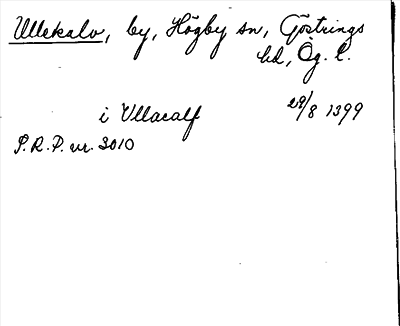 Ullekalv, by, Högby sn, Göstrings
hd, Ög. l.
i Ullacalf 29/8 1399
S.R.P. nr. 3010